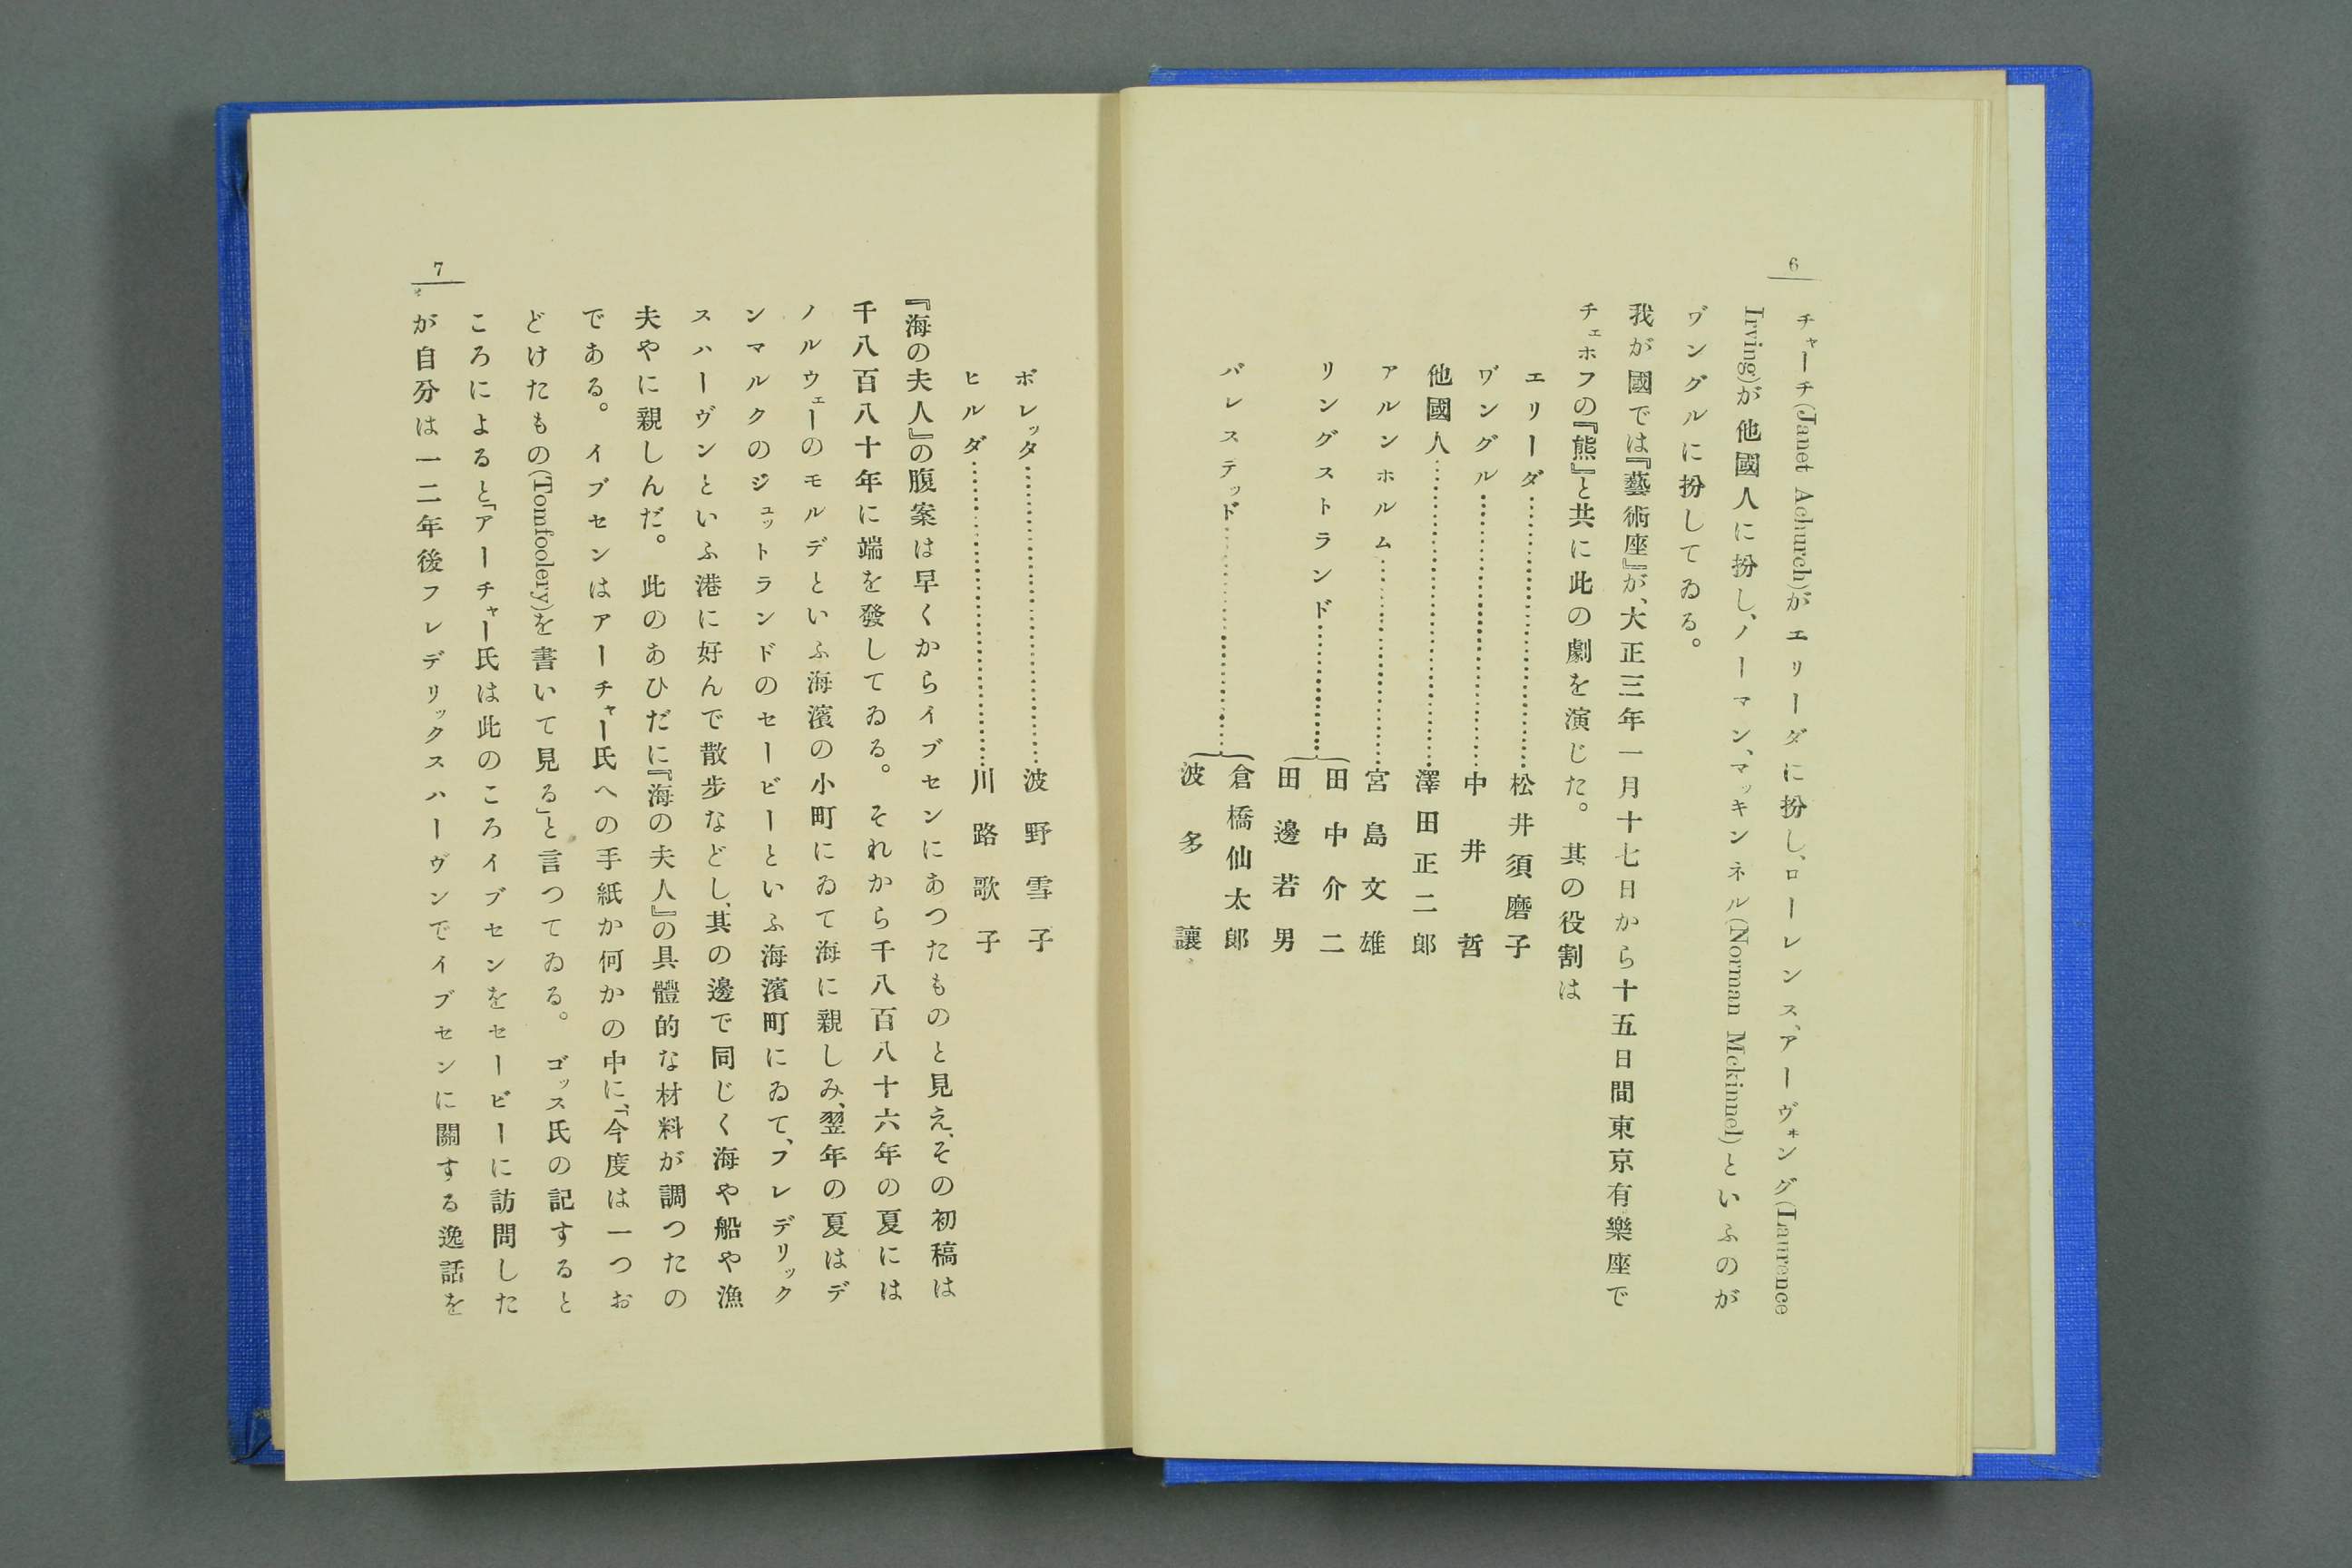 6
チャーチ(Janet Achurch)がエリーダに扮し、ローレンス、アーヴヰング(Laurence
Irving)が他國人に扮し、ノーマン、マッキンネル(Norman Mckinnel)といふのが
ワ゛ングルに扮してゐる。
我が國では『藝術座』が、大正三年一月十七日から十五日間東京有樂座で
チェホフの『熊』と共に此の劇を演じた。其の役割は
エリーダ……………………松井須磨子
ワ゛ングル……………………中井哲
他國人……………………澤田正二郎
アルンホルム………………宮島文雄
リングストランド…………{田中介二
田邊若男
バレステッド………………{倉橋仙太郎
波多讓
ボレッタ……………………波野雪子
ヒルダ……………………川路歌子
『海の夫人』の腹案は早くからイブセンにあつたものと見え、その初稿は
千八百八十年に端を發してゐる。それから千八百八十六年の夏には
ノルウェーのモルデといふ海濱の小町にゐて海に親しみ、翌年の夏はデ
ンマルクのジュットランドのセービーといふ海濱町にゐて、フレデリック
スハーヴンといふ港に好んで散步などし、其の邊で同じく海や船や漁
夫やに親しんだ。此のあひだに『海の夫人』の具體的な材料が調つたの
である。イブセンはアーチャー氏への手紙か何かの中に、「今度は一つお
どけたもの(Tomfoolery)を書いて見る」と言つてゐる。ゴッス氏の記すると
ころによると「アーチャー氏は此のころイブセンをセービーに訪問した
が自分は一二年後フレデリックスハーヴンでイブセンに關する逸話を
7